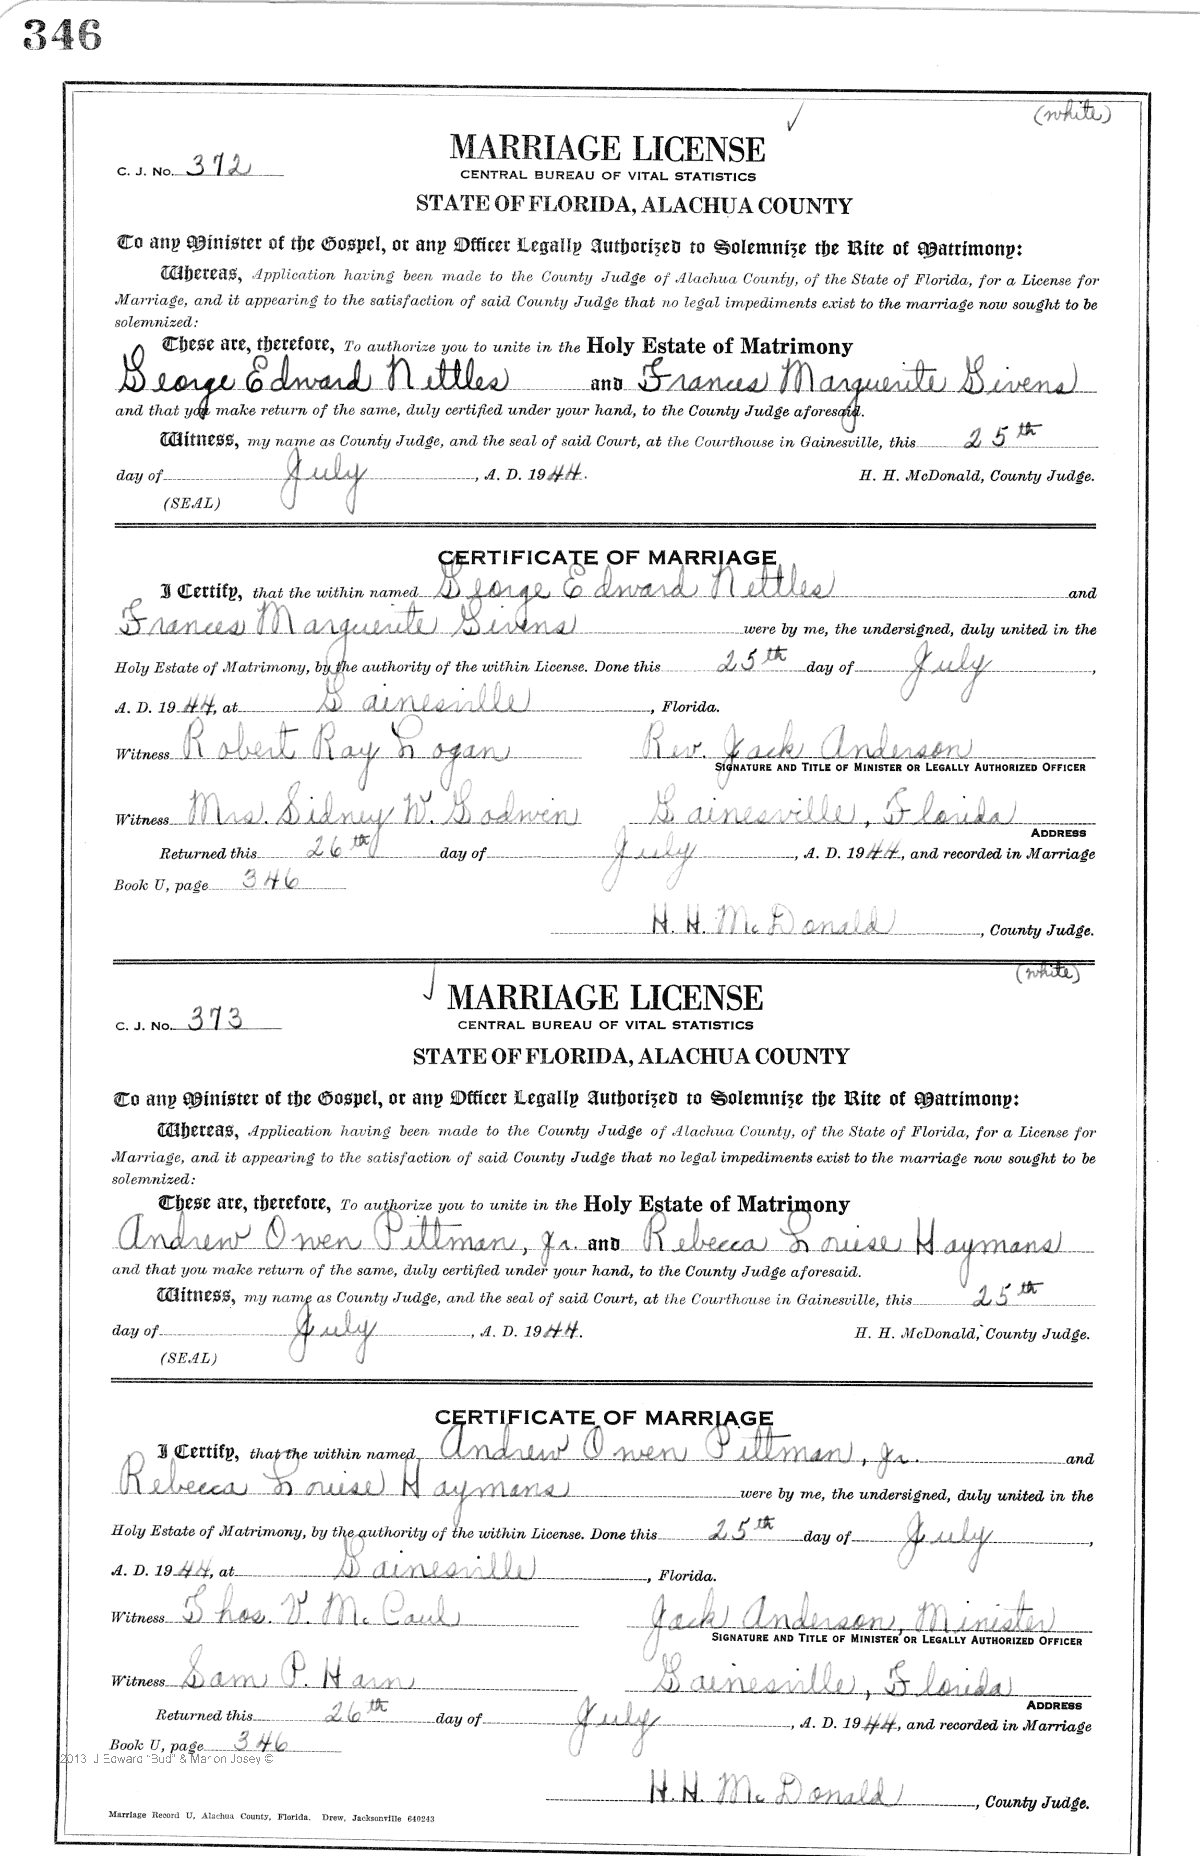 346
(white)
MARRIAGE LICENSE
C. J. No. 372
CENTRAL BUREAU OF VITAL STATISTICS
STATE OF FLORIDA, ALACHUA COUNTY
To any Minister of the Gospel, or any Officer Legally Authorized to Solemnize the Rite of Matrimony:
Whereas, Application having been made to the County Judge of Alachua County, of the State of Florida, for a License for
Marriage, and it appearing to the satisfaction of said County Judge that no legal impediments exist to the marriage now sought to be
solemnized:
These are, therefore, To authorize you to unite in the Holy Estate of Matrimony
George Edward Nettles and Frances Marguerite Givens
and that you make return of the same, duly certified under your hand, to the County Judge aforesaid.
Witness, my name as County Judge, and the seal of said Court, at the Courthouse in Gainesville, this 25th
day of July, A. D. 1944. H. H. McDonald, County Judge.
(SEAL)
CERTIFICATE OF MARRIAGE
I Certify, that the within named George Edward Nettles and
Frances Marguerite Givens were by me, the undersigned, duly united in the
Holy Estate of Matrimony, by the authority of the within License. Done this 25th day of July,
A. D. 1944, at Gainesville, Florida.
Witness Robert Ray Logan Rev. Jack Anderson
SIGNATURE AND TITLE OF MINISTER OR LEGALLY AUTHORIZED OFFICER
Witness Mrs. Sidney W. Godwin Gainesville, Florida
ADDRESS
Returned this 26th day of July, A. D. 1944, and recorded in Marriage
Book U, page 346
H. H. McDonald, County Judge.
(white)
MARRIAGE LICENSE
C. J. No. 373
CENTRAL BUREAU OF VITAL STATISTICS
STATE OF FLORIDA, ALACHUA COUNTY
To any Minister of the Gospel, or any Officer Legally Authorized to Solemnize the Rite of Matrimony:
Whereas, Application having been made to the County Judge of Alachua County, of the State of Florida, for a License for
Marriage, and it appearing to the satisfaction of said County Judge that no legal impediments exist to the marriage now sought to be
solemnized:
These are, therefore, To authorize you to unite in the Holy Estate of Matrimony
Andrew Owen Pittman, Jr. and Rebecca Louise Haymans
and that you make return of the same, duly certified under your hand, to the County Judge aforesaid.
Witness, my name as County Judge, and the seal of said Court, at the Courthouse in Gainesville, this 25th
day of July, A. D. 1944. H. H. McDonald, County Judge.
(SEAL)
CERTIFICATE OF MARRIAGE
I Certify, that the within named Andrew Owen Pittman, Jr. and
Rebecca Louise Haymans were by me, the undersigned, duly united in the
Holy Estate of Matrimony, by the authority of the within License. Done this 25th day of July,
A. D. 1944, at Gainesville, Florida.
Witness Thos. V. McCaul Jack Anderson, Minister
SIGNATURE AND TITLE OF MINISTER OR LEGALLY AUTHORIZED OFFICER
Witness Sam P. Harn Gainesville, Florida
ADDRESS
Returned this 26th day of July, A. D. 1944, and recorded in Marriage
Book U, page 346
2013 J Edward "Bud" & Marion Josey ©
H. H. McDonald, County Judge.
Marriage Record U, Alachua County, Florida. Drew, Jacksonville 640243